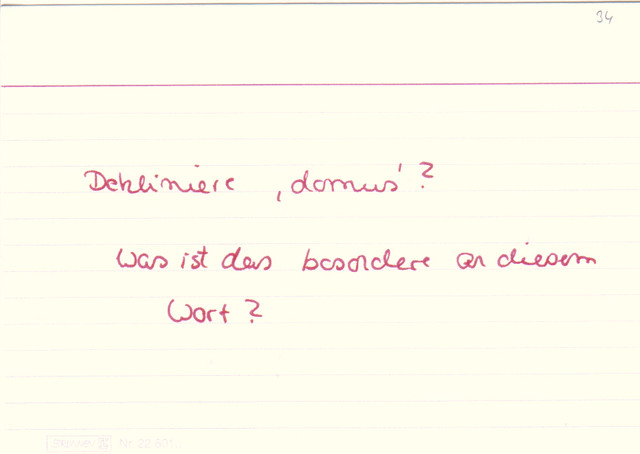 34
Dekliniere ‚domus‘?
Was ist das besondere an diesem
Wort?
Nr. 22 601